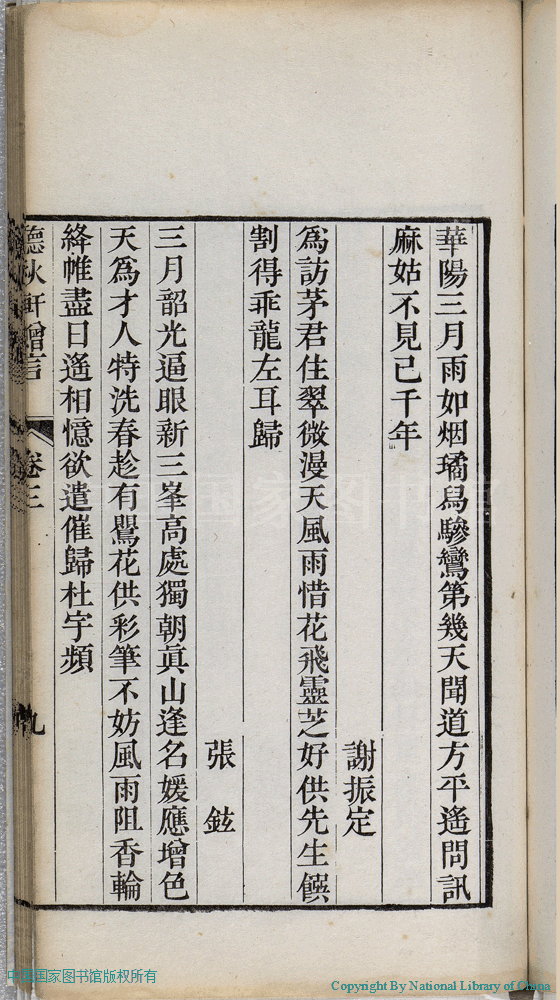 華陽三月雨如烟璚舄驂鸞第幾天聞道方平遙問訊
麻姑不見已千年
謝振定
為訪茅君住翠微漫天風雨惜花飛靈芝好供先生饌
割得乖龍左耳歸
張鉉
三月韶光逼眼新三峯高處獨朝眞山逢名媛應增色
天為才人特洗春趁有鸎花供彩筆不妨風雨阻香輪
絳帷盡日遙相憶欲遣催歸杜宇頻
德秋軒贈言
卷三
九
中国国家图书馆版权所有
Copyright By National Library of China